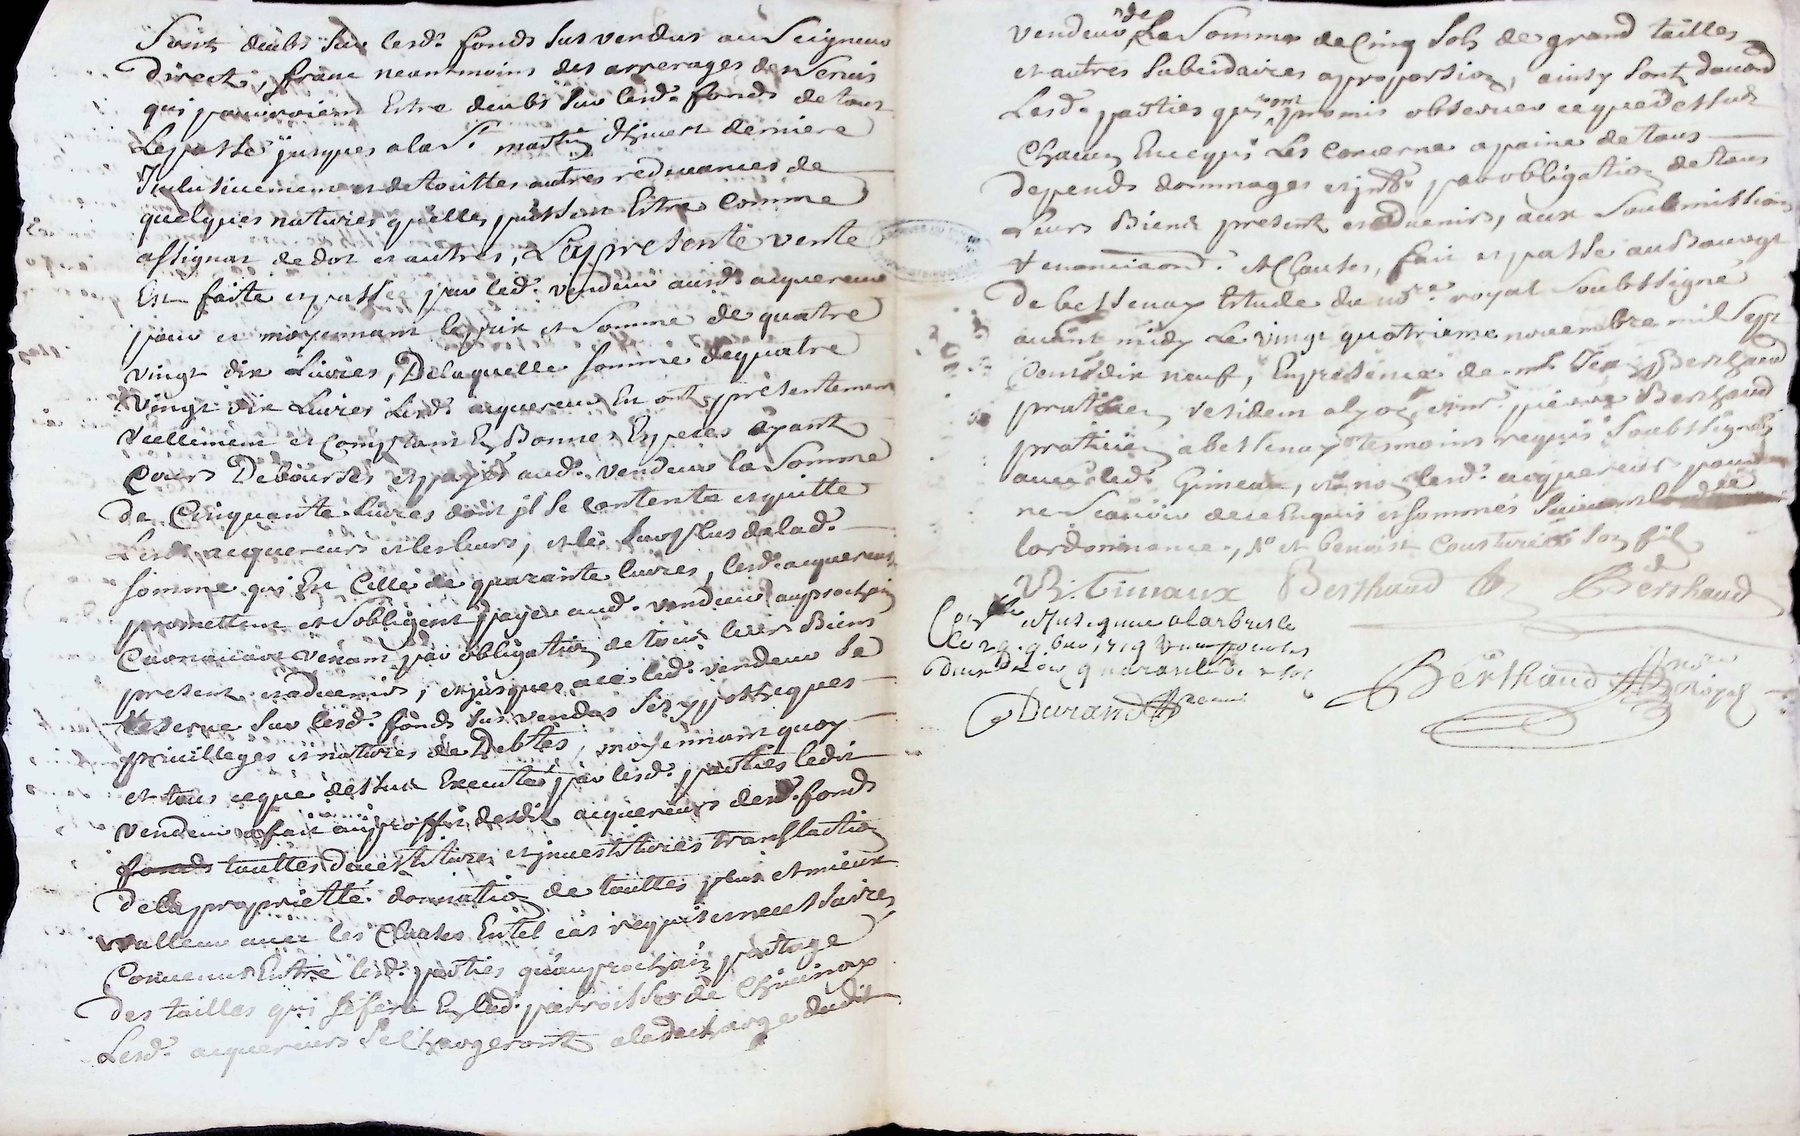 Sont deubs sur lesd. fonds sus vendus au Seigneur
direct, franc neantmoins des arrerages des servis
qui pourroient Estre deubs sur lesd. fonds de tout
Le passé jusques a la St martin d'hiuert derniere
Inclusiuement et de touttes autres redeuances de
quelques natures quelles puissent Estre comme
assignat de dot et autres, La presente vente
Est faite et passée par led. vendeur ausd. acquereur
pour et moyennant le prix et Somme de quatre
vingt dix Liures, De laquelle somme de quatre
vingt dix Liures Lesd. acquereur En ont presentement
reellement et Comptant En Bonnes Especes ayant
Cours Deboursés et payés aud. vendeur la Somme
de Cinquante liures dont jl se contente et quitte
Lesd. acquereurs et les leurs, et le surplus de lad.
somme qui Est Celle de quarante liures, lesd. acquereurs
promettent et s'obligent payer aud. vendeur au prochain
Carnaual venant par obligation de tous leurs Biens
present et aduenir, et jusques a ce led. vendeur se
reserue sur lesd. fonds sus vendus ses ypotheques
priuilleges et natures de Debtes, moyennant quoy
et tout ce que dessus Executté par lesd. parties ledit
vendeur a fait au proffit desdit acquereurs desd. fonds
fonds touttes deuestitures et jnuestitures translation
de la proprietté donnation de touttes plus et mieux
valleur auec les Clauses En tel cas requises et necessaires
Conuenus Entre lesd. parties qu'au prochain partage
des tailles qui se fera En lad. parroisse de Cheuinay
Lesd. acquereurs se Chargeront a la decharge dudit
vendeur de La Somme de Cinq Sols de grand tailles
et autres subsidaires a proportion, ainsy sont d'acord
Lesd. parties qui ont promis obseruer ce que dessus
Chacun En ce qui Les Concerne a paine de tous
depends dommages et jnts. par obligation de tous
Leurs Biens present et aduenir, aux soubmissions
renonciaons. et Clauses, fait et passé au Bourg
de bessenay Etude du nore. royal soubssigné
auant midy Le vingt quatrieme nouembre mil sept
Cents dix neuf, En presence de mr Jean Berthaud
praticien resident a lyon, et mr. pierre Berthaud
praticien a bessenay tesmoins requis soubssignés
auec led. Gimeaux, et non lesd. acquereurs pour
ne Scauoir de ce Enquis et sommés suiuant
lordonnance., et benoist Cousturier son fil
B. Gimaux Berthaud Berthaud
Controllé et Insinué a larbresle
le 29. 9bre 1719
quarante
Durand
Berthaud nore royal